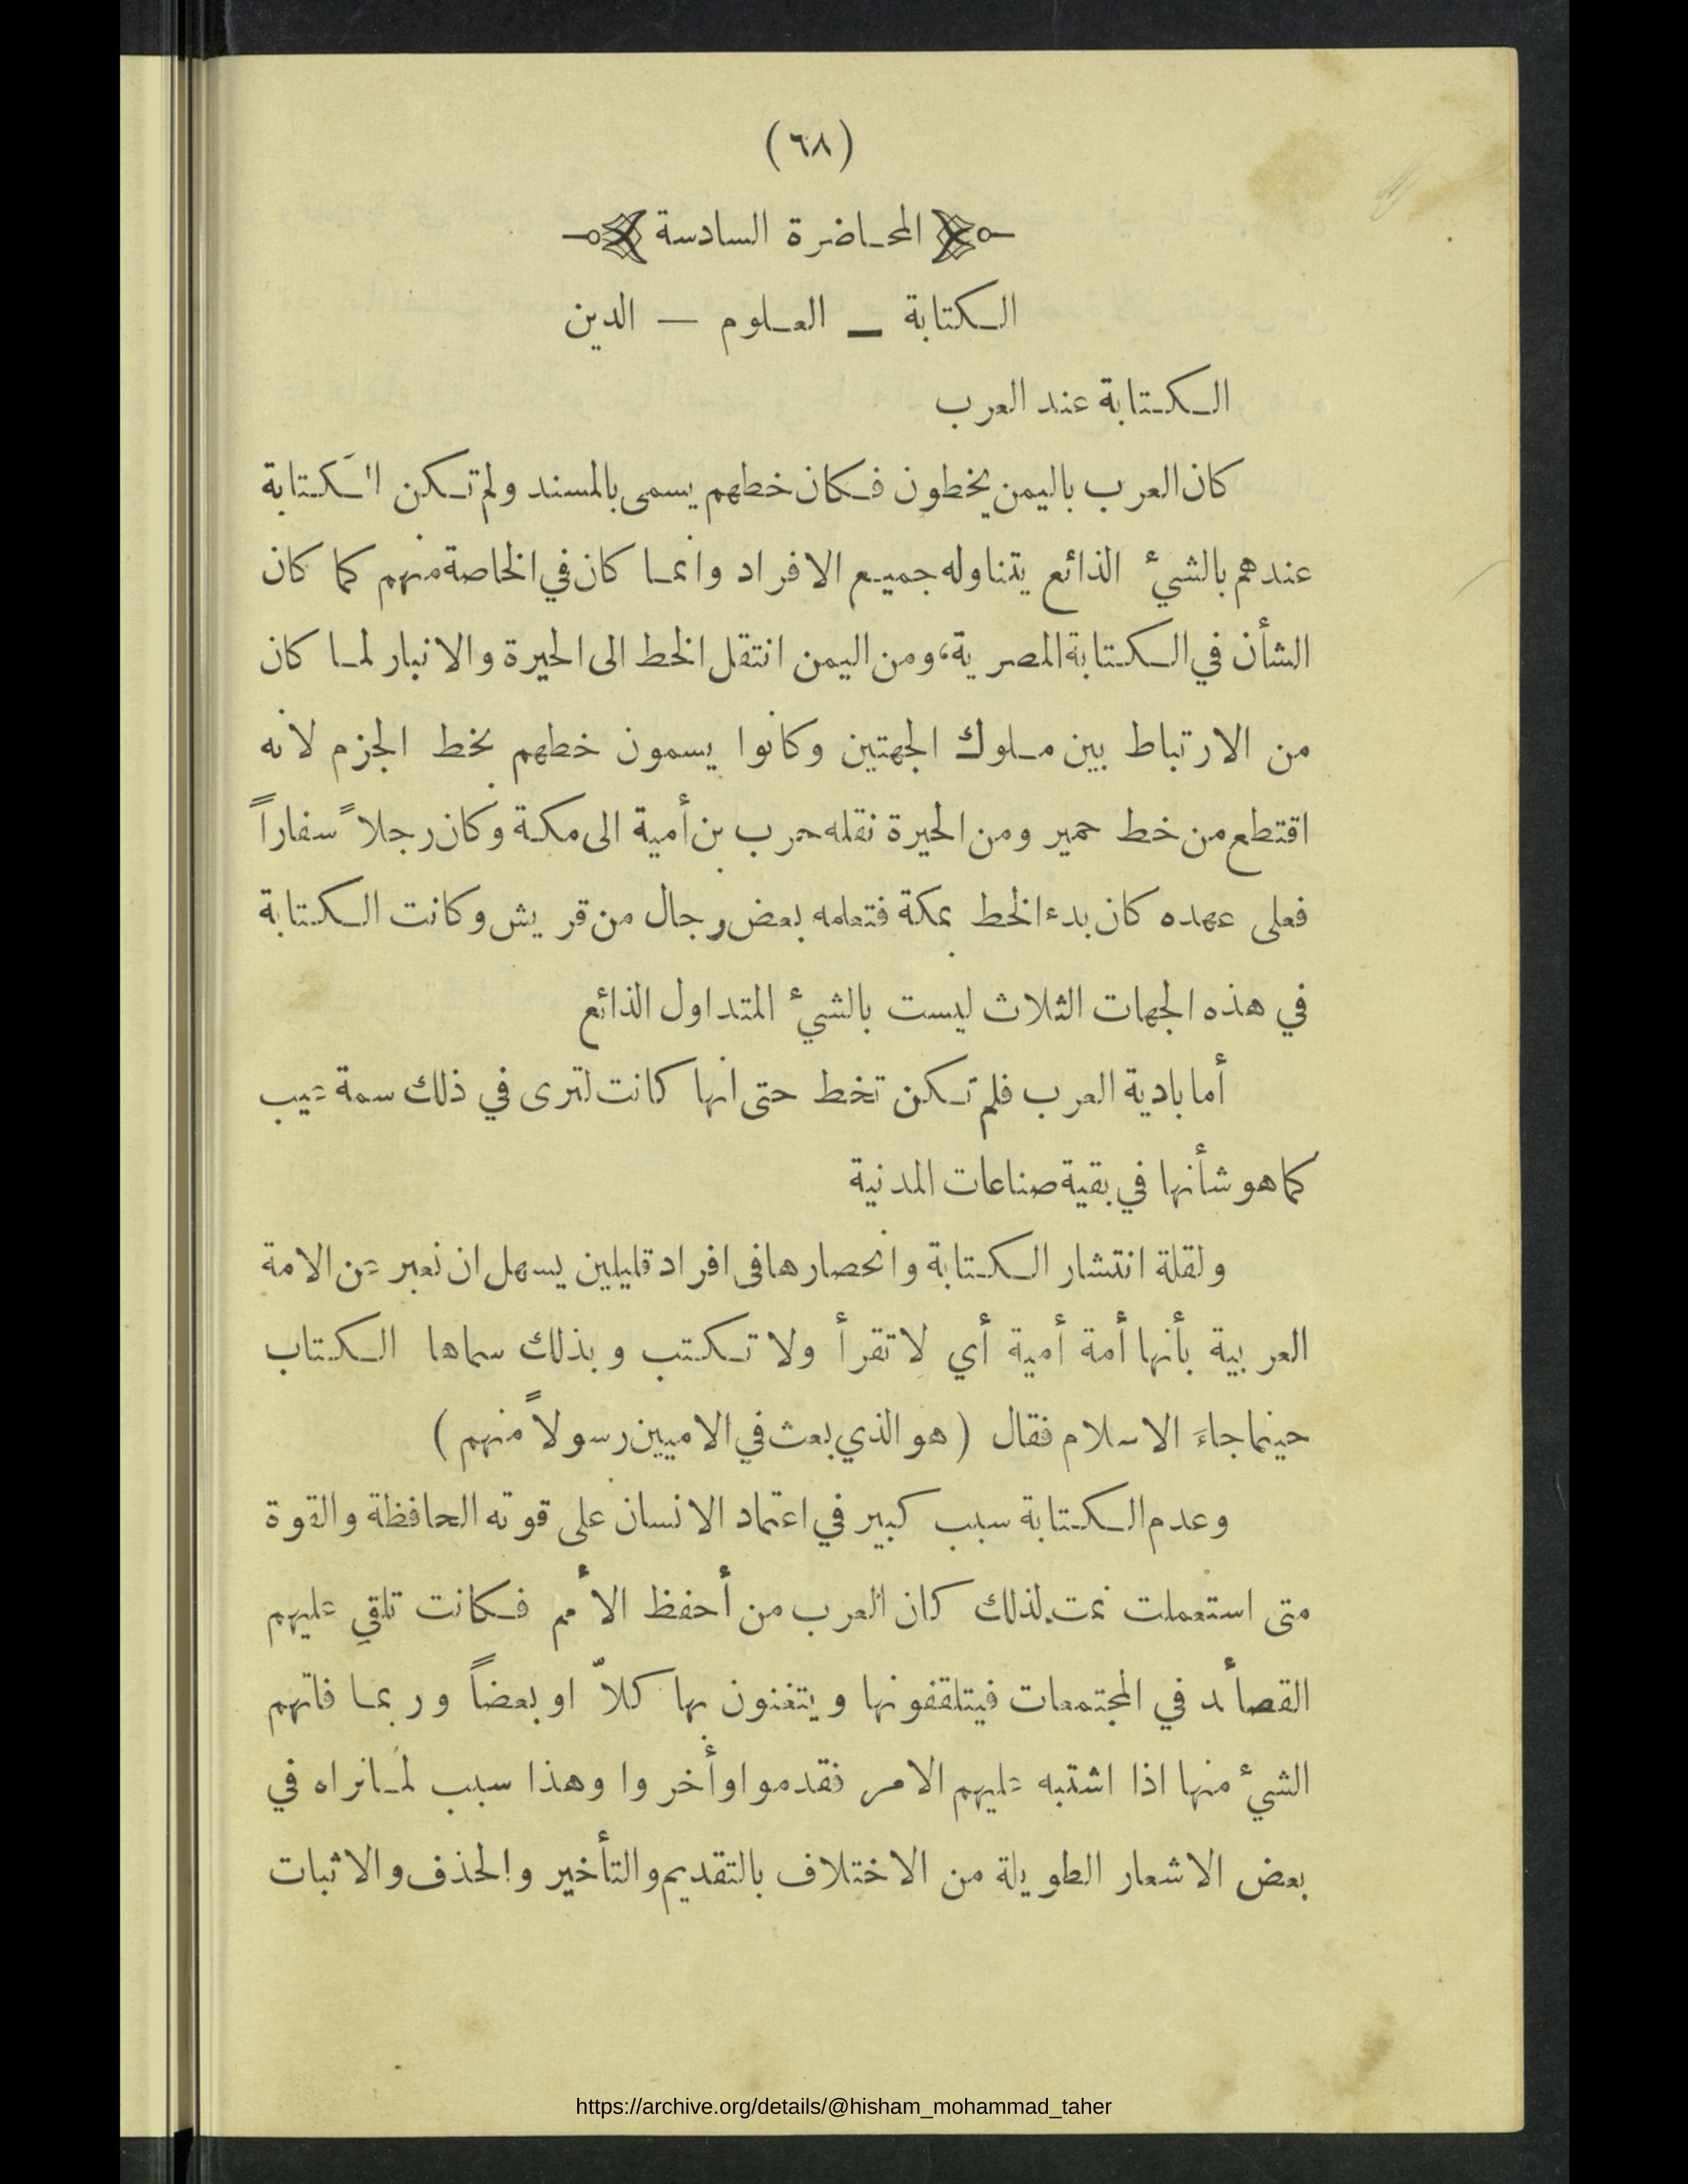 (٦٨)
المحاضرة السادسة
الكتابة — العلوم — الدين
الكتابة عند العرب
كان العرب باليمن يخطون فكان خطهم يسمى بالمسند ولم تكن الكتابة
عندهم بالشيء الذائع يتناوله جميع الافراد وانما كان في الخاصة منهم كما كان
الشأن في الكتابة المصرية، ومن اليمن انتقل الخط الى الحيرة والانبار لما كان
من الارتباط بين ملوك الجهتين وكانوا يسمون خطهم بخط الجزم لانه
اقتطع من خط حمير ومن الحيرة نقله حرب بن أمية الى مكة وكان رجلاً سفاراً
فعلى عهده كان بدء الخط بمكة فتعلمه بعض رجال من قريش وكانت الكتابة
في هذه الجهات الثلاث ليست بالشيء المتداول الذائع
أما بادية العرب فلم تكن تخط حتى انها كانت لترى في ذلك سمة عيب
كما هو شأنها في بقية صناعات المدنية
ولقلة انتشار الكتابة وانحصارها فى افراد قليلين يسهل ان نعبر عن الامة
العربية بأنها أمة أمية أي لا تقرأ ولا تكتب وبذلك سماها الكتاب
حينما جاءَ الاسلام فقال (هو الذي بعث في الاميين رسولاً منهم)
وعدم الكتابة سبب كبير في اعتماد الانسان على قوته الحافظة والقوة
متى استعملت نمت. لذلك كان العرب من أحفظ الأمم فكانت تلقي عليهم
القصأد في المجتمعات فيتلقفونها ويتغنون بها كلاّ او بعضاً وربما فاتهم
الشيء منها اذا اشتبه عليهم الامر فقدموا وأخروا وهذا سبب لما نراه في
بعض الاشعار الطويلة من الاختلاف بالتقديم والتأخير والحذف والاثبات
https://archive.org/details/@hisham_mohammad_taher